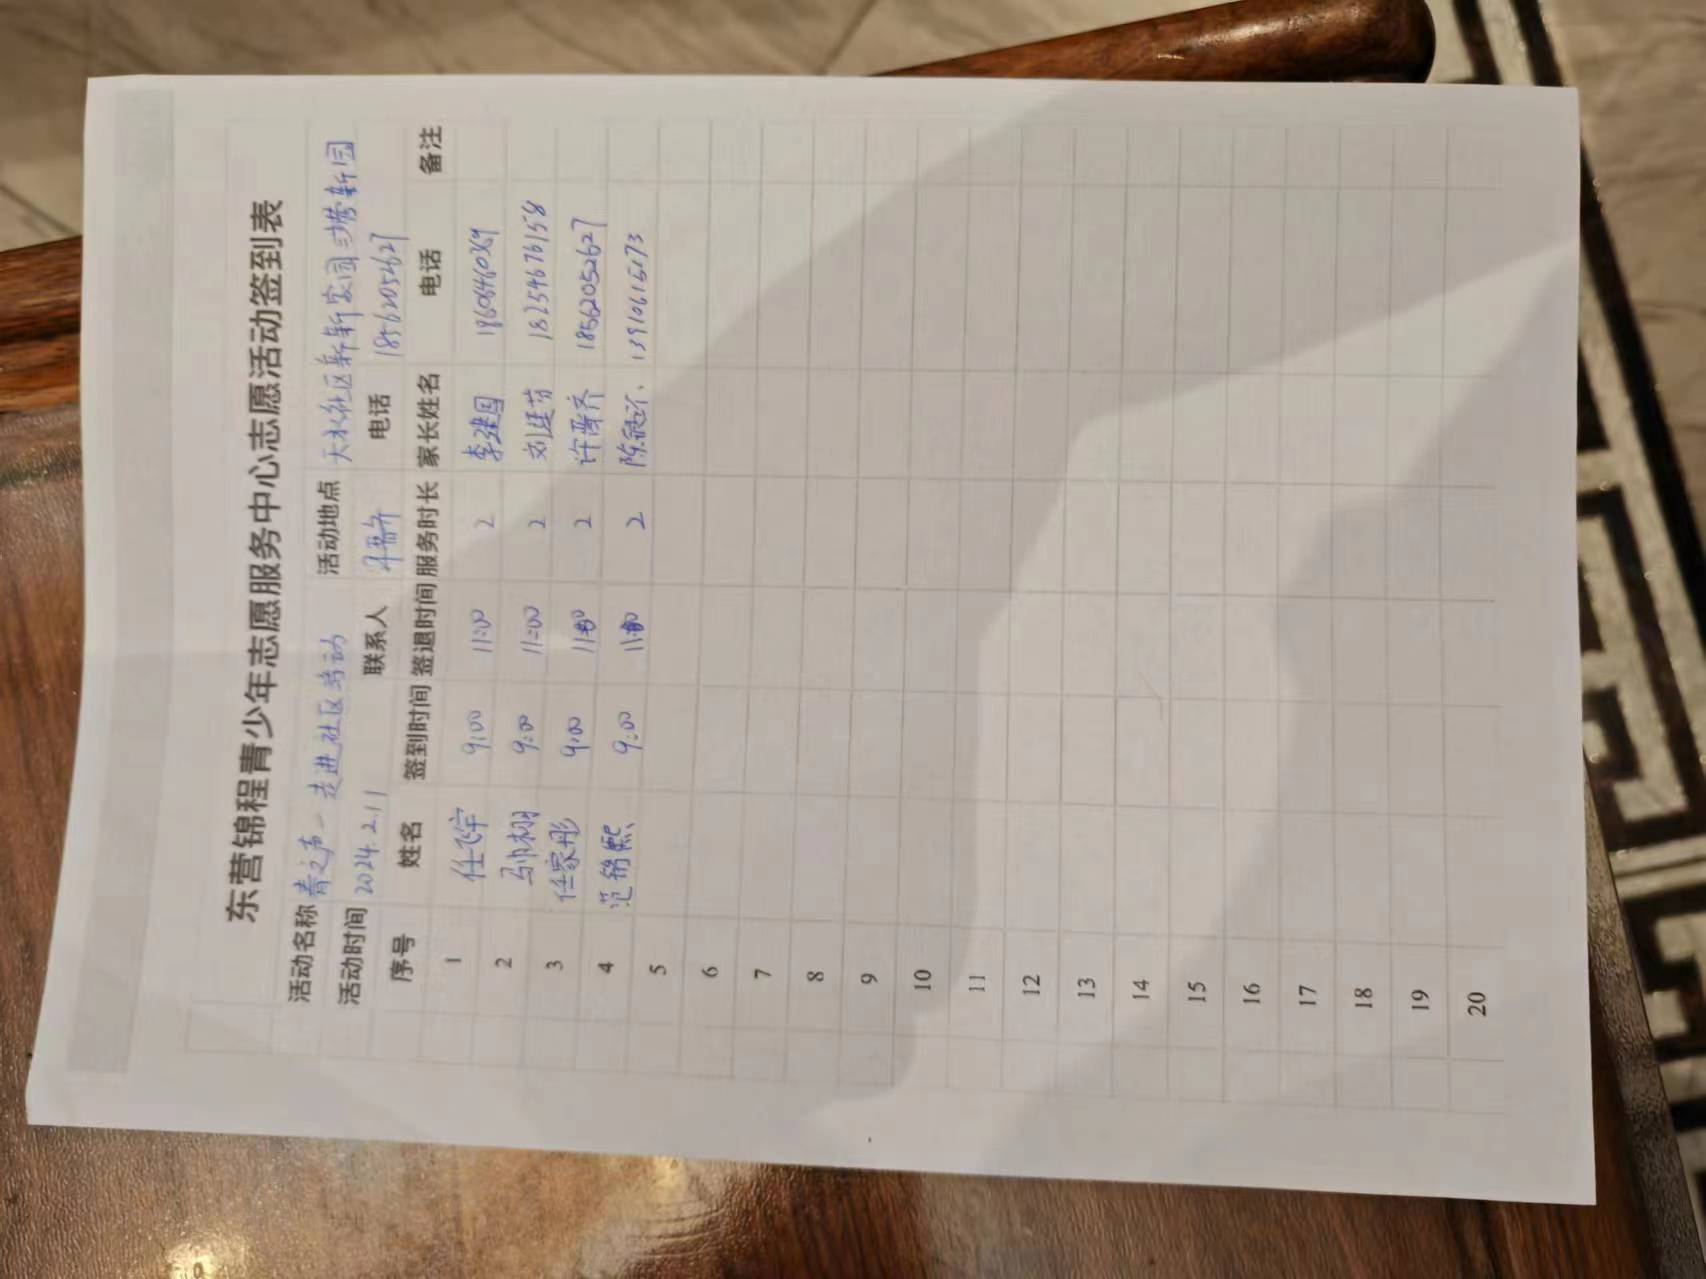 东营锦程青少年志愿服务中心志愿活动签到表
活动名称 青之声-走进社区劳动 活动地点 天水社区新新家园 营新园
活动时间 2024.2.11 联系人 电话 18562054627
序号 姓名 签到时间 签退时间 服务时长 家长姓名 电话 备注
1 任飞宇 9:00 11:00 2 李建国
2 马帅栩 9:00 11:00 2 刘建芳 18254676158
3 任家彤 9:00 11:00 2 许晋齐 18562052627
4 范锦熙 9:00 11:00 2 13910615073
5
6
7
8
9
10
11
12
13
14
15
16
17
18
19
20